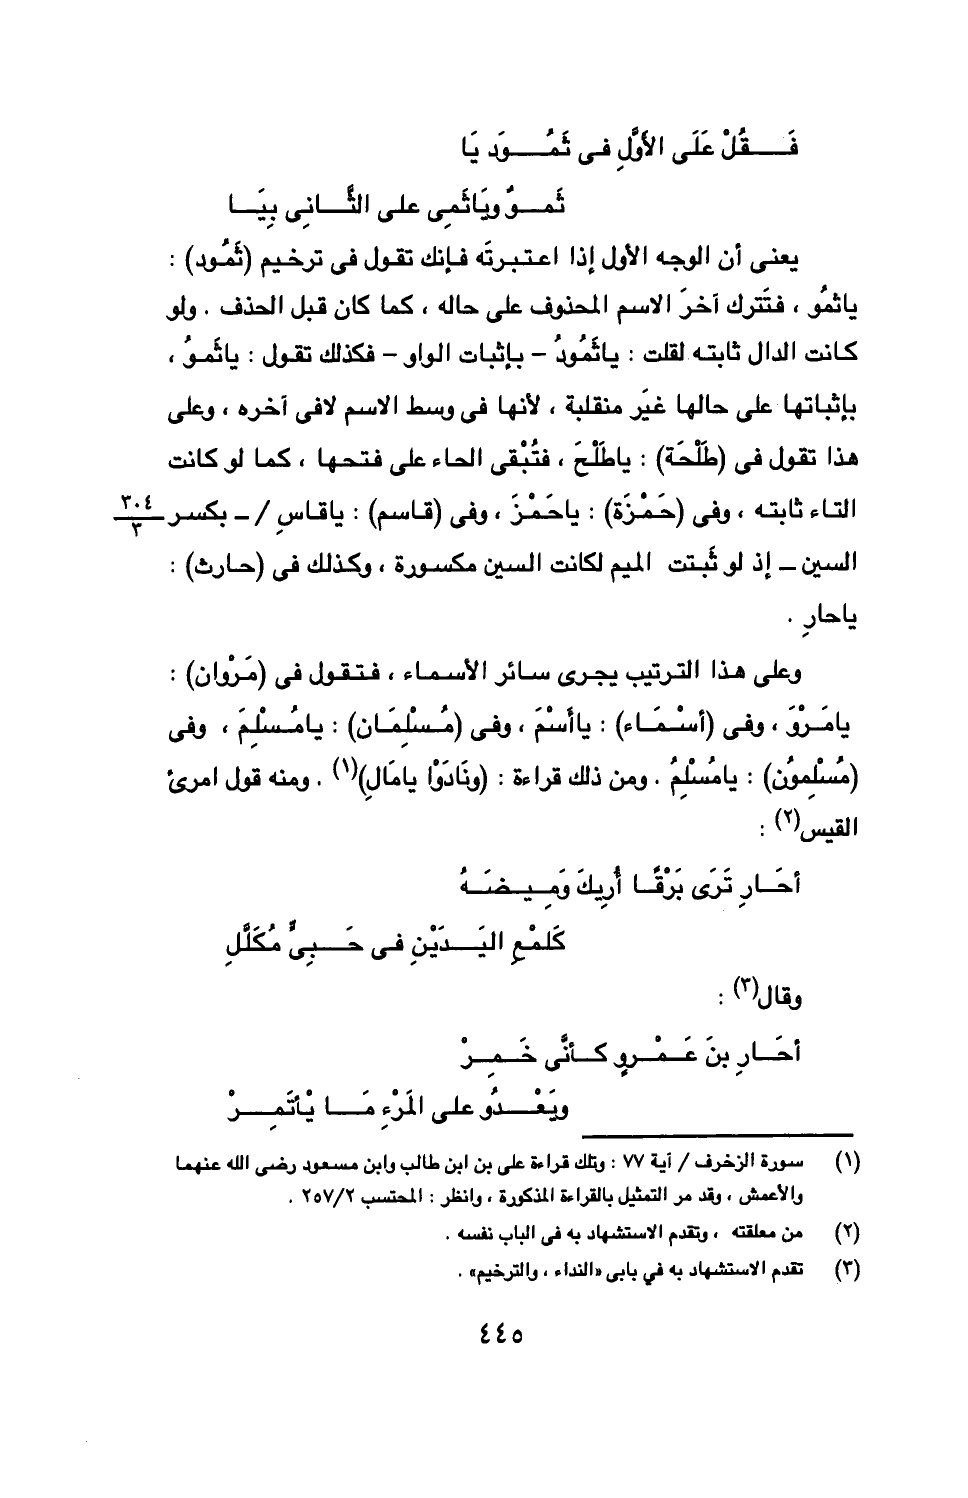 فَـــقُلْ عَلَى الأوَّلِ فى ثَمُـــودَ يَا
ثَمـــوُ ويَاثَمِى على الثَّـــانِى بِيَـــا
يعنى أن الوجه الأول إذا اعتبرتَه فإنك تقول فى ترخيم (ثَمُود) :
ياثمُو ، فتَترك آخرَ الاسم المحذوف على حاله ، كما كان قبل الحذف . ولو
كانت الدال ثابته لقلت : ياثَمُودُ – بإثبات الواو – فكذلك تقول : ياثموُ ،
بإثباتها على حالها غيَر منقلبة ، لأنها فى وسط الاسم لافى آخره ، وعلى
هذا تقول فى (طَلْحَة) : ياطَلْحَ ، فتُبْقى الحاء على فتحها ، كما لو كانت
التاء ثابته ، وفى (حَمْزَة) : ياحَمْزَ ، وفى (قاسم) : ياقاسِ / – بكسر ٣٠٤/٣
السين – إذ لو ثَبتت الميم لكانت السين مكسورة ، وكذلك فى (حارث) :
ياحارِ .
وعلى هذا الترتيب يجرى سائر الأسماء ، فتقول فى (مَرْوان) :
يامَرْوَ ، وفى (أسْمَاء) : ياأسْمَ ، وفى (مُسْلِمَان) : يامُسْلِمَ ، وفى
(مُسْلِموُن) : يامُسْلِمُ . ومن ذلك قراءة : (ونَادَوْا يامَالِ)(١) . ومنه قول امرئ
القيس(٢) :
أحَـارِ تَرَى بَرْقًـا أُرِيكَ وَمِـيـضَـهُ
كَلَمْعِ اليَـــدَيْنِ فى حَـــبِىٍّ مُكَلَّلِ
وقال(٣) :
أحَـارِ بنَ عَـمْـرٍو كـأنَّى خَـمِـرْ
ويَعْـــدُو على المَرْءِ مَـــا يْأتَمِـــرْ
(١) سورة الزخرف / آية ٧٧ : وتلك قراءة على بن ابن طالب وابن مسعود رضى الله عنهما
والأعمش ، وقد مر التمثيل بالقراءة المذكورة ، وانظر : المحتسب ٢٥٧/٢ .
(٢) من معلقته ، وتقدم الاستشهاد به فى الباب نفسه .
(٣) تقدم الاستشهاد به في بابى «النداء ، والترخيم» .
٤٤٥